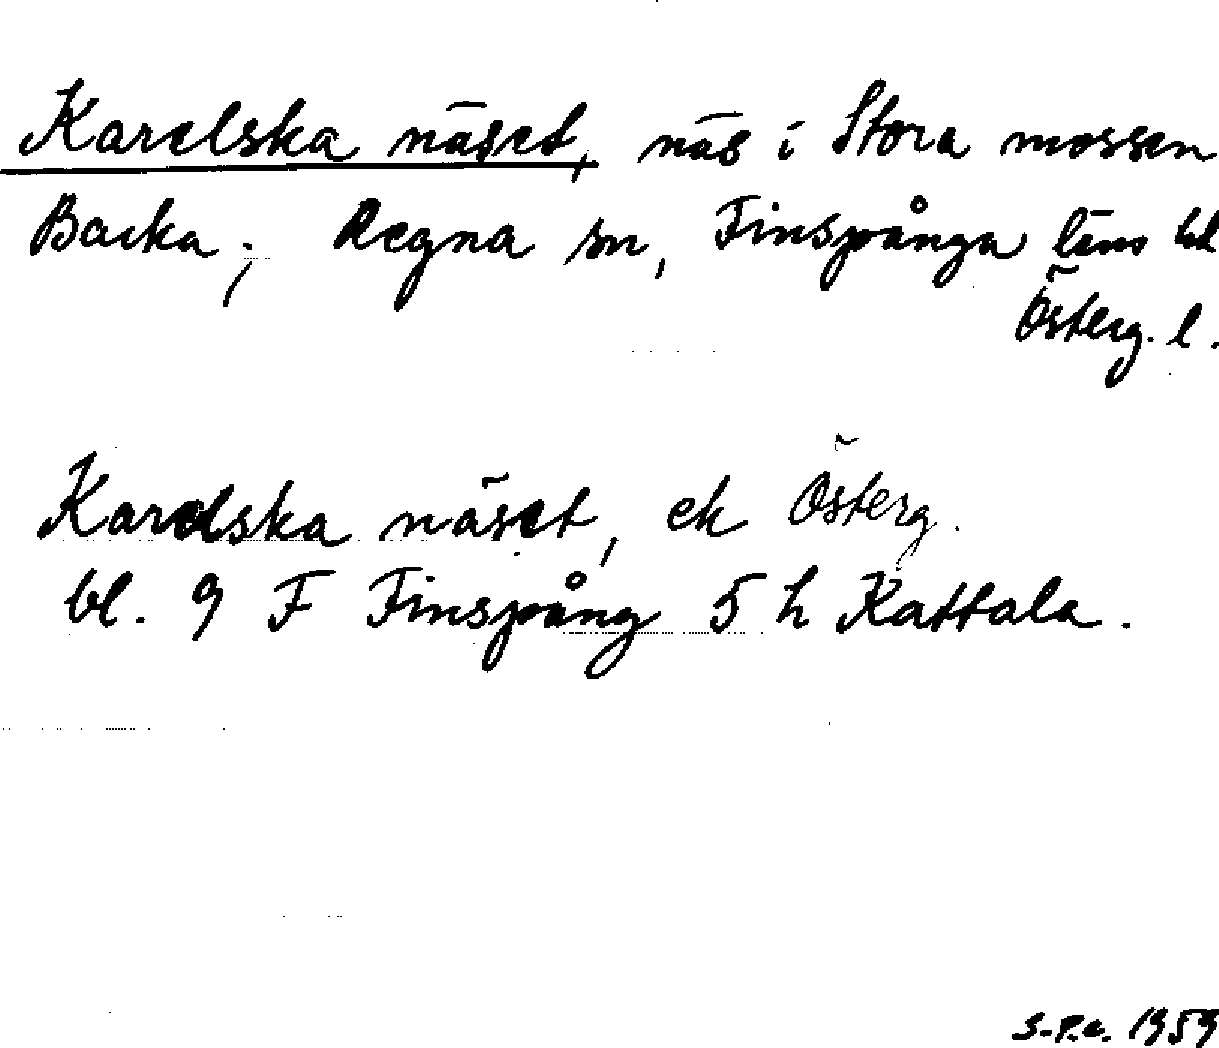 Karelska näset, näs i Stora mossen
Backa; Regna sn, Finspånga läns hd
Österg. l.
Karelska näset, ek Österg.
bl. 9 F Finspång 5 h Kattala.
S-P.e. 1959